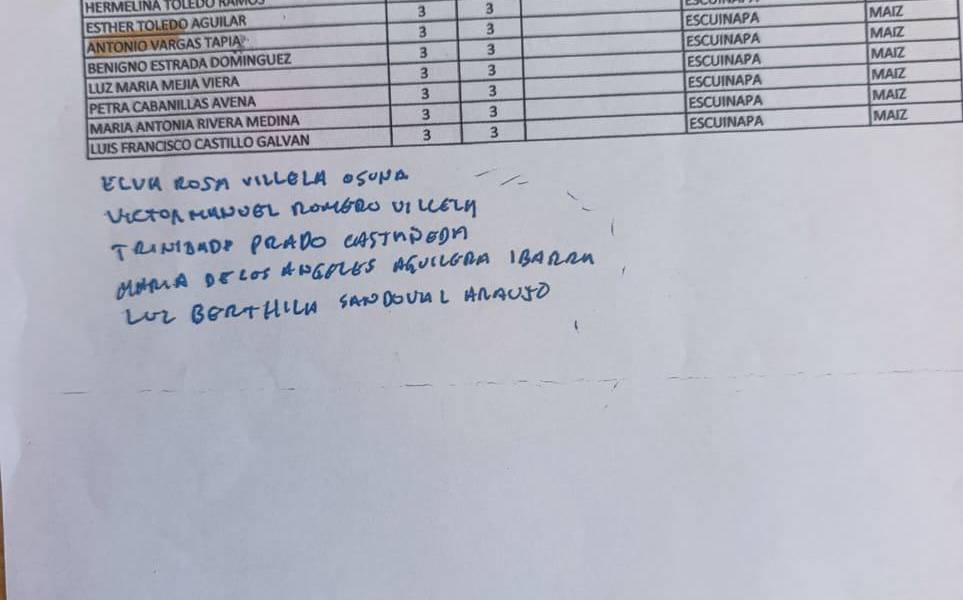 HERMELINA TOLEDO RAMOS 3 3 ESCUINAPA
ESTHER TOLEDO AGUILAR 3 3 ESCUINAPA MAIZ
ANTONIO VARGAS TAPIA 3 3 ESCUINAPA MAIZ
BENIGNO ESTRADA DOMINGUEZ 3 3 ESCUINAPA MAIZ
LUZ MARIA MEJIA VIERA 3 3 ESCUINAPA MAIZ
PETRA CABANILLAS AVENA 3 3 ESCUINAPA MAIZ
MARIA ANTONIA RIVERA MEDINA 3 3 ESCUINAPA MAIZ
LUIS FRANCISCO CASTILLO GALVAN 3 3
ELVA ROSA VILLELA OSUNA
VICTOR MANUEL ROMERO VILLELA
TRINIDAD PRADO CASTAÑEDA
MARIA DE LOS ANGELES AGUILERA IBARRA
LUZ BERTHILA SANDOVAL ARAUJO